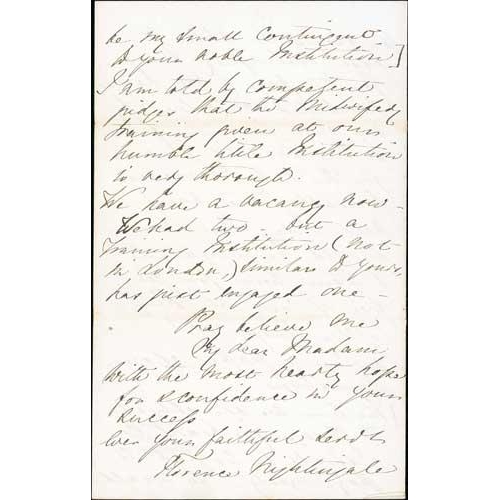 be my small contingent
to your noble Institution]
I am told by competent
judges that the Midwifery
training given at our
humble little Institution
is very thorough.
We have a vacancy now –
We had two – but a
Training Institution (not
in London,) similar to yours,
has just engaged one –
Pray believe me
My dear Madam,
with the most hearty hope
for & confidence in your
success
ever your faithful servt
Florence Nightingale